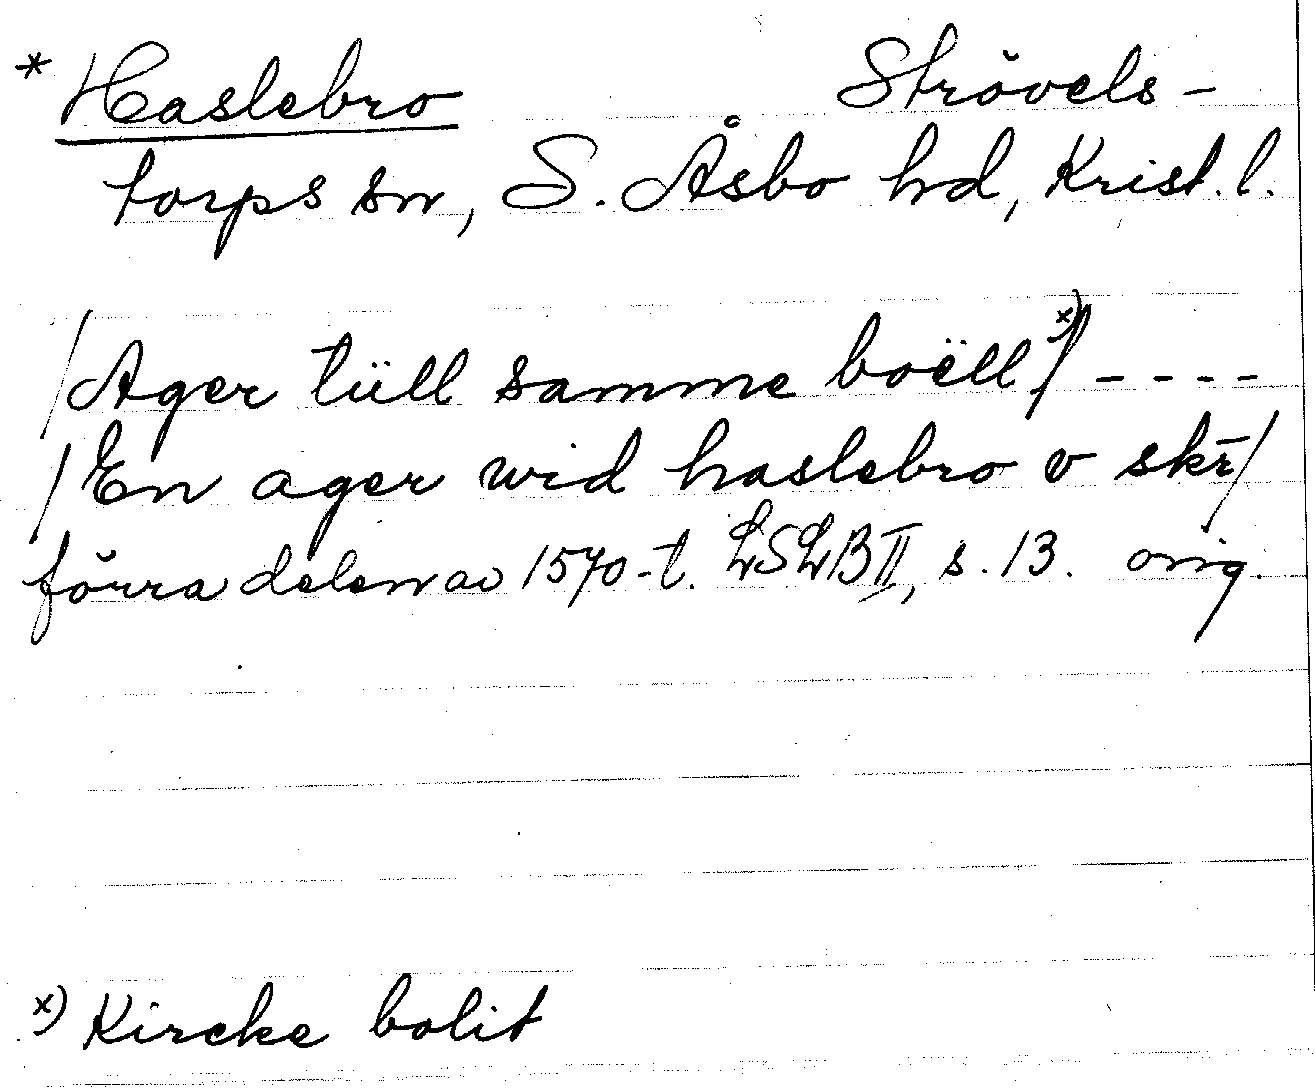 * Haslebro Strövels-
torps sn, S. Åsbo hd, Krist. l.
/Ager tüll samme boëll x)/ ----
/En ager wid haslebro v skr̄/
förra delen av 1570-t. LSLB II, s. 13. orig.
x) Kircke bolit